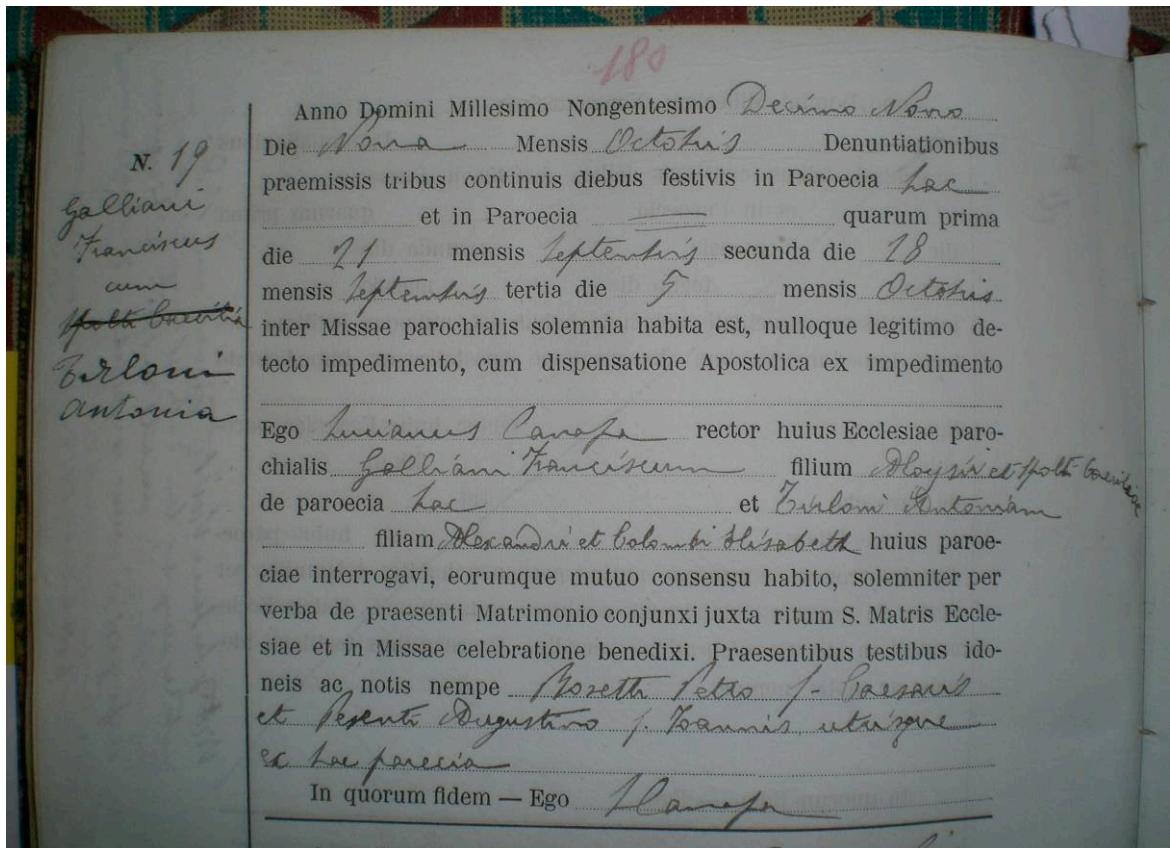 180
Anno Domini Millesimo Nongentesimo Decimo Nono
N. 19
Die Nona Mensis Octobris Denuntiationibus
praemissis tribus continuis diebus festivis in Paroecia hac
et in Paroecia quarum prima
die 21 mensis Septembris secunda die 28
mensis Septembris tertia die 5 mensis Octobris
inter Missae parochialis solemnia habita est, nulloque legitimo de-
tecto impedimento, cum dispensatione Apostolica ex impedimento
Galliani
Franciscus
cum
Tirloni
Antonia
Ego Lucianus Canapa rector huius Ecclesiae paro-
chialis Galliani Franciscum filium Aloysii et
de paroecia hac et Tirloni Antoniam
filiam Alexandri et Colombi Elisabeth huius paroe-
ciae interrogavi, eorumque mutuo consensu habito, solemniter per
verba de praesenti Matrimonio conjunxi juxta ritum S. Matris Eccle-
siae et in Missae celebratione benedixi. Praesentibus testibus ido-
neis ac notis nempe Petro f. Caesaris
et Pesenti Augustino f. Ioannis utrisque
ex hac parecia
In quorum fidem — Ego Canapa